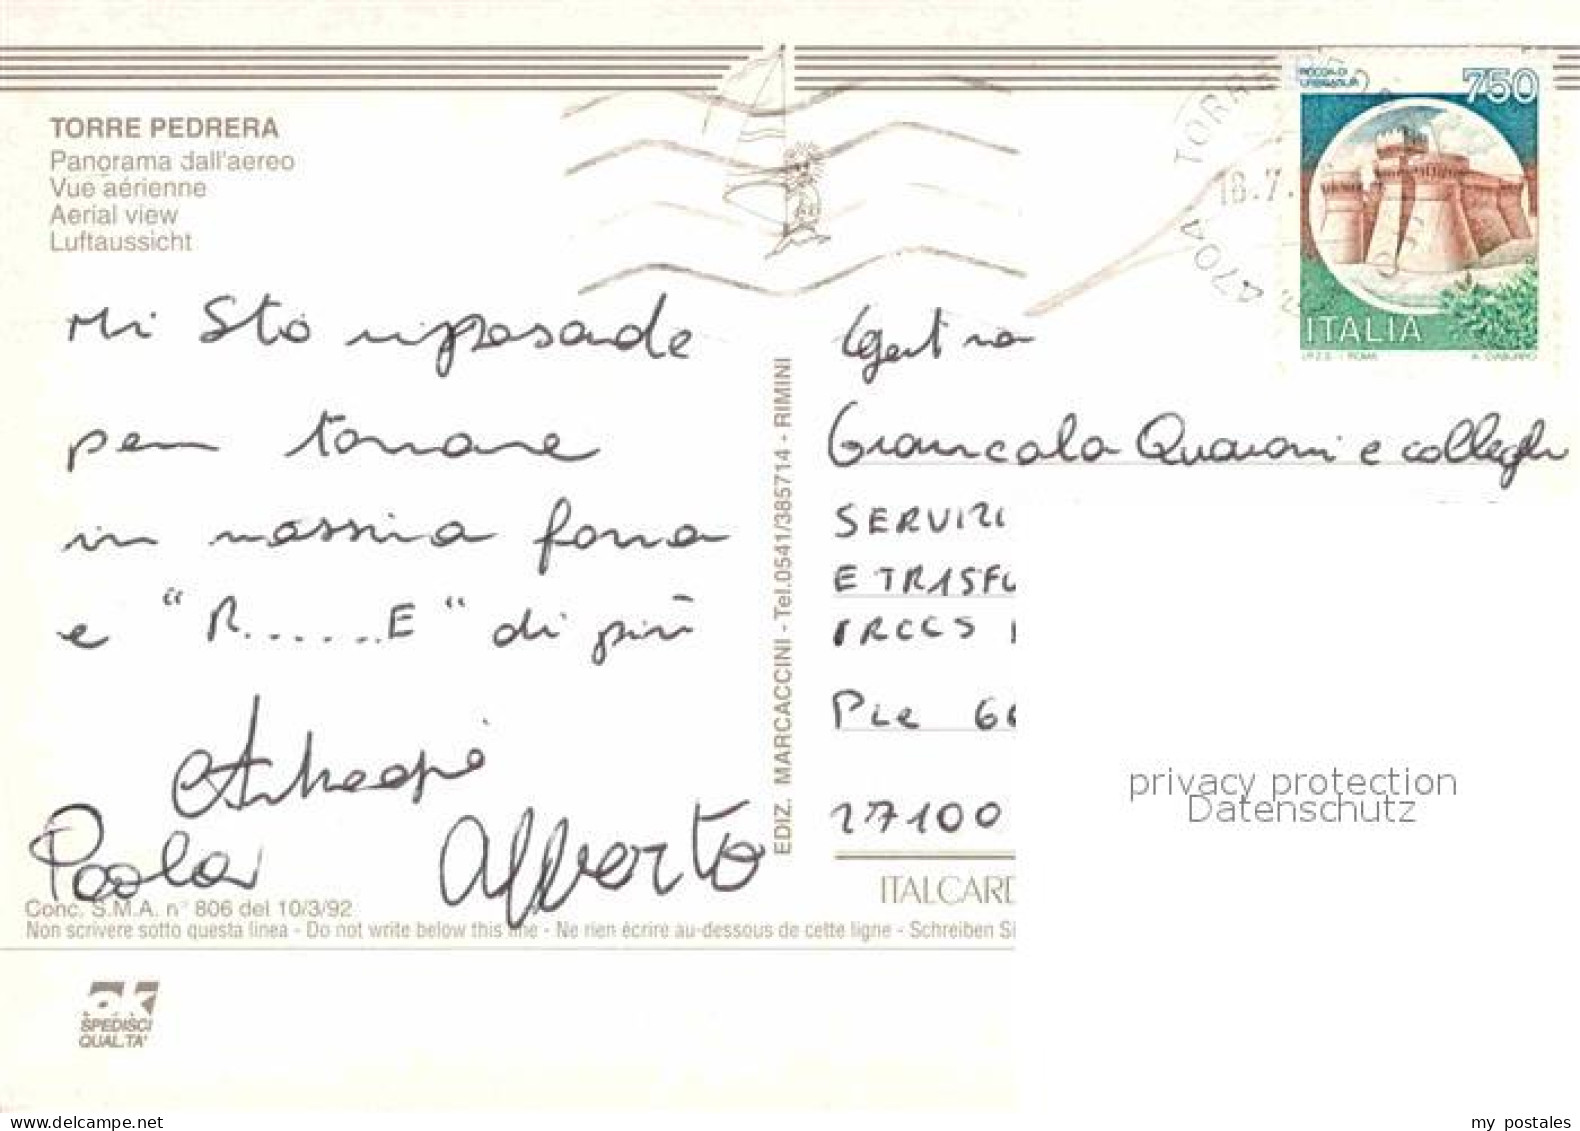 TORRE PEDRERA
Panorama dall'aereo
Vue aérienne
Aerial view
Luftaussicht
Mi sto riposando
per tornare
in massima forma
e "R......E" di più
Paola
Alberto
Conc. S.M.A. n° 806 del 10/3/92
Non scrivere sotto questa linea - Do not write below this line - Ne rien écrire au-dessous de cette ligne - Schreiben Si
SPEDISCI
QUALITA'
EDIZ. MARCACCINI - Tel.0541/385714 - RIMINI
TORRE
18.7.
ROCCA DI
URBISAGLIA
750
ITALIA
I.P.Z.S. - ROMA
Giancarla Quaroni e colleghi
SERVIZI
E TRASFU
IRCCS
P.le
27100
ITALCARD
privacy protection
Datenschutz
my postales